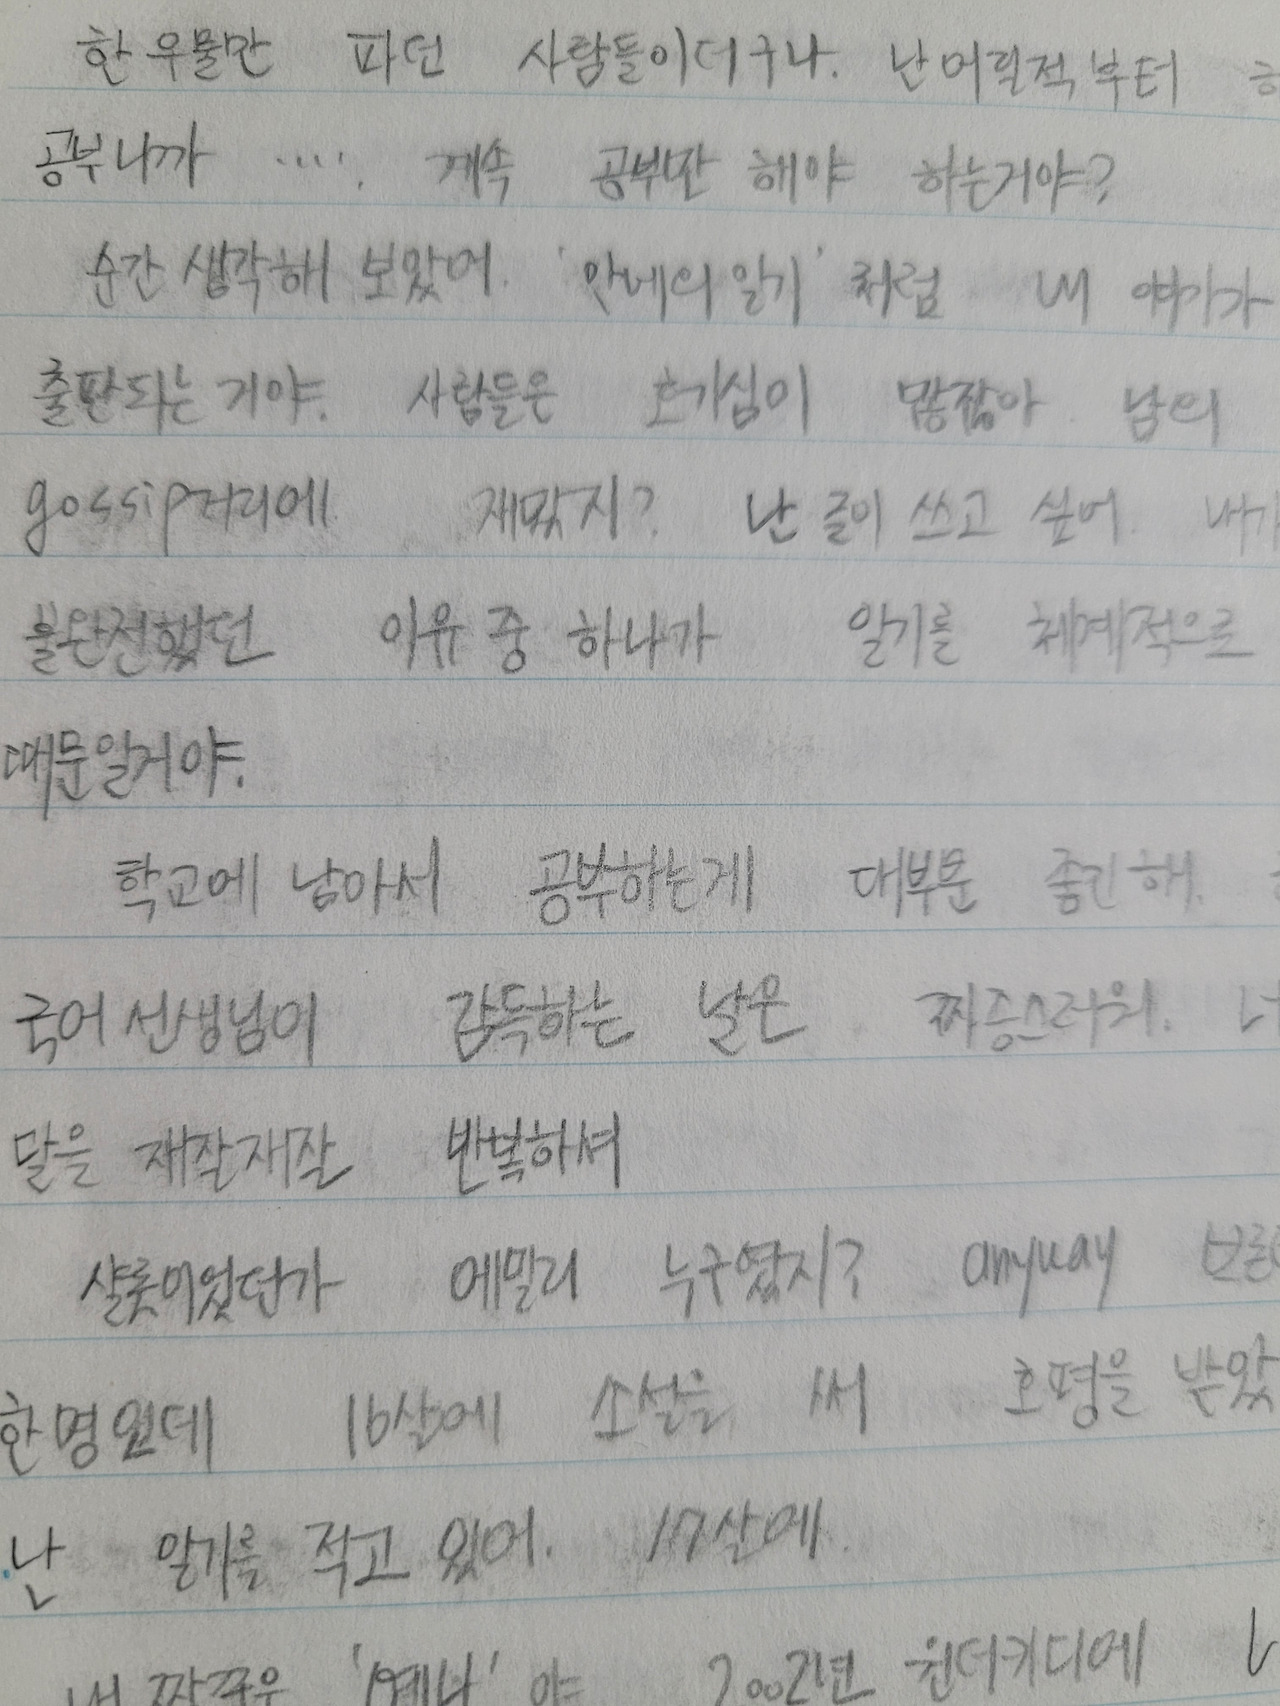 한 우물만 파던 사람들이더구나. 난 어릴적부터
공부니까 ..... 계속 공부만 해야 하는거야?
순간 생각해 보았어. '안네의 일기' 처럼 내 얘기가
출판되는 거야. 사람들은 호기심이 많잖아 남의
gossip거리에 재밌지? 난 글이 쓰고 싶어. 내가
불완전했던 이유 중 하나가 일기를 체계적으로
때문일거야.
학교에 남아서 공부하는게 대부분 줄긴 해.
국어 선생님이 감독하는 날은 짜증스러워.
말을 재잘재잘 반복하셔
샬롯이었던가 에밀리 누구였지? anyway
한명인데 16살에 소설을 써 호평을 받았
난 일기를 적고 있어. 17살에.
내 짝꿍은 '예나' 야 2002년 원더키디에